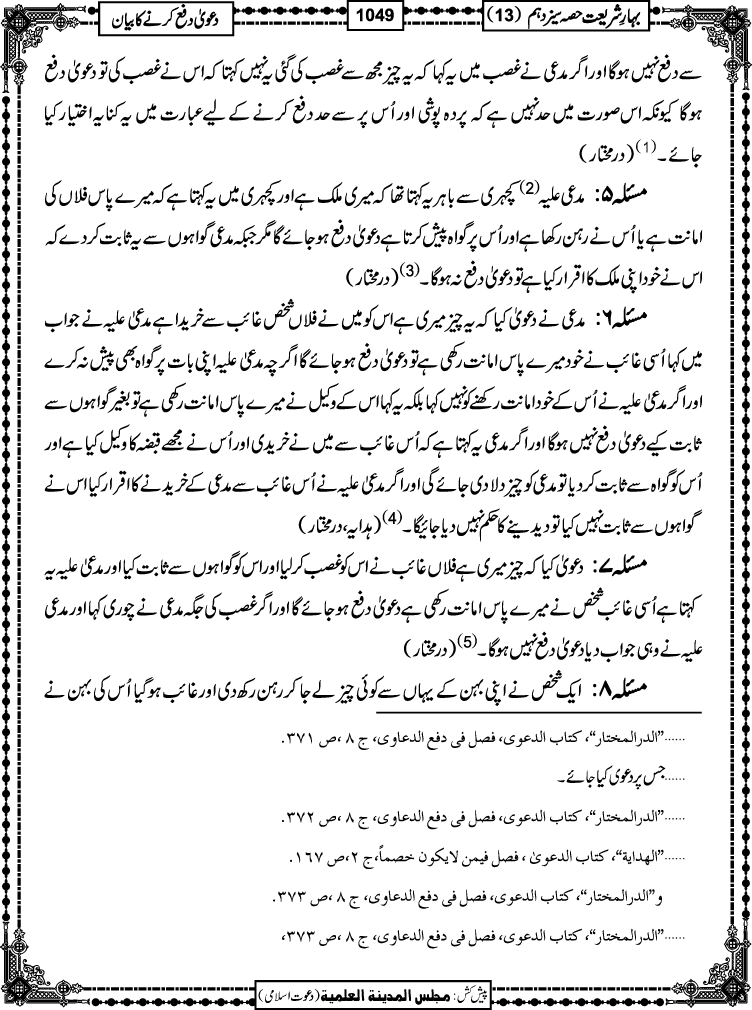 بہارِ شریعت حصہ سیزدہم (13)
1049
دعویٰ دفع کرنے کا بیان
سے دفع نہیں ہوگا اور اگر مدعی نے غصب میں یہ کہا کہ یہ چیز مجھ سے غصب کی گئی یہ نہیں کہتا کہ اس نے غصب کی تو دعویٰ دفع
ہوگا کیونکہ اس صورت میں حد نہیں ہے کہ پردہ پوشی اور اُس پر سے حد دفع کرنے کے لیے عبارت میں یہ کنایہ اختیار کیا
جائے۔(1) (درمختار)
مسئلہ ۵: مدعی علیہ(2) کچہری سے باہر یہ کہتا تھا کہ میری ملک ہے اور کچہری میں یہ کہتا ہے کہ میرے پاس فلاں کی
امانت ہے یا اُس نے رہن رکھا ہے اور اُس پر گواہ پیش کرتا ہے دعویٰ دفع ہو جائے گا مگر جبکہ مدعی گواہوں سے یہ ثابت کردے کہ
اس نے خود اپنی ملک کا اقرار کیا ہے تو دعویٰ دفع نہ ہوگا۔(3) (درمختار)
مسئلہ ۶: مدعی نے دعویٰ کیا کہ یہ چیز میری ہے اس کو میں نے فلاں شخص غائب سے خریدا ہے مدعیٰ علیہ نے جواب
میں کہا اُسی غائب نے خود میرے پاس امانت رکھی ہے تو دعویٰ دفع ہو جائے گا اگرچہ مدعیٰ علیہ اپنی بات پر گواہ بھی پیش نہ کرے
اور اگر مدعیٰ علیہ نے اُس کے خود امانت رکھنے کو نہیں کہا بلکہ یہ کہا اس کے وکیل نے میرے پاس امانت رکھی ہے تو بغیر گواہوں سے
ثابت کیے دعویٰ دفع نہیں ہوگا اور اگر مدعی یہ کہتا ہے کہ اُس غائب سے میں نے خریدی اور اُس نے مجھے قبضہ کا وکیل کیا ہے اور
اُس کو گواہ سے ثابت کردیا تو مدعی کو چیز دلادی جائے گی اور اگر مدعیٰ علیہ نے اُس غائب سے مدعی کے خریدنے کا اقرار کیا اس نے
گواہوں سے ثابت نہیں کیا تو دیدینے کا حکم نہیں دیا جائیگا۔(4) (ہدایہ، درمختار)
مسئلہ ۷: دعویٰ کیا کہ چیز میری ہے فلاں غائب نے اس کو غصب کرلیا اور اس کو گواہوں سے ثابت کیا اور مدعیٰ علیہ یہ
کہتا ہے اُسی غائب شخص نے میرے پاس امانت رکھی ہے دعویٰ دفع ہو جائے گا اور اگر غصب کی جگہ مدعی نے چوری کہا اور مدعی
علیہ نے وہی جواب دیا دعویٰ دفع نہیں ہوگا۔(5) (درمختار)
مسئلہ ۸: ایک شخص نے اپنی بہن کے یہاں سے کوئی چیز لے جا کر رہن رکھ دی اور غائب ہوگیا اُس کی بہن نے
......”الدرالمختار“، کتاب الدعوی، فصل فی دفع الدعاوی، ج ۸ ،ص ۳۷۱.
......جس پر دعوی کیا جائے۔
......”الدرالمختار“، کتاب الدعوی، فصل فی دفع الدعاوی، ج ۸ ،ص ۳۷۲.
......”الهداية“، کتاب الدعویٰ ، فصل فیمن لایکون خصماً،ج ۲،ص ۱۶۷.
و”الدرالمختار“، کتاب الدعوی، فصل فی دفع الدعاوی، ج ۸ ،ص ۳۷۳.
......”الدرالمختار“، کتاب الدعوی، فصل فی دفع الدعاوی، ج ۸ ،ص ۳۷۳،
پیش کش: مجلس المدينة العلمية (دعوت اسلامی)